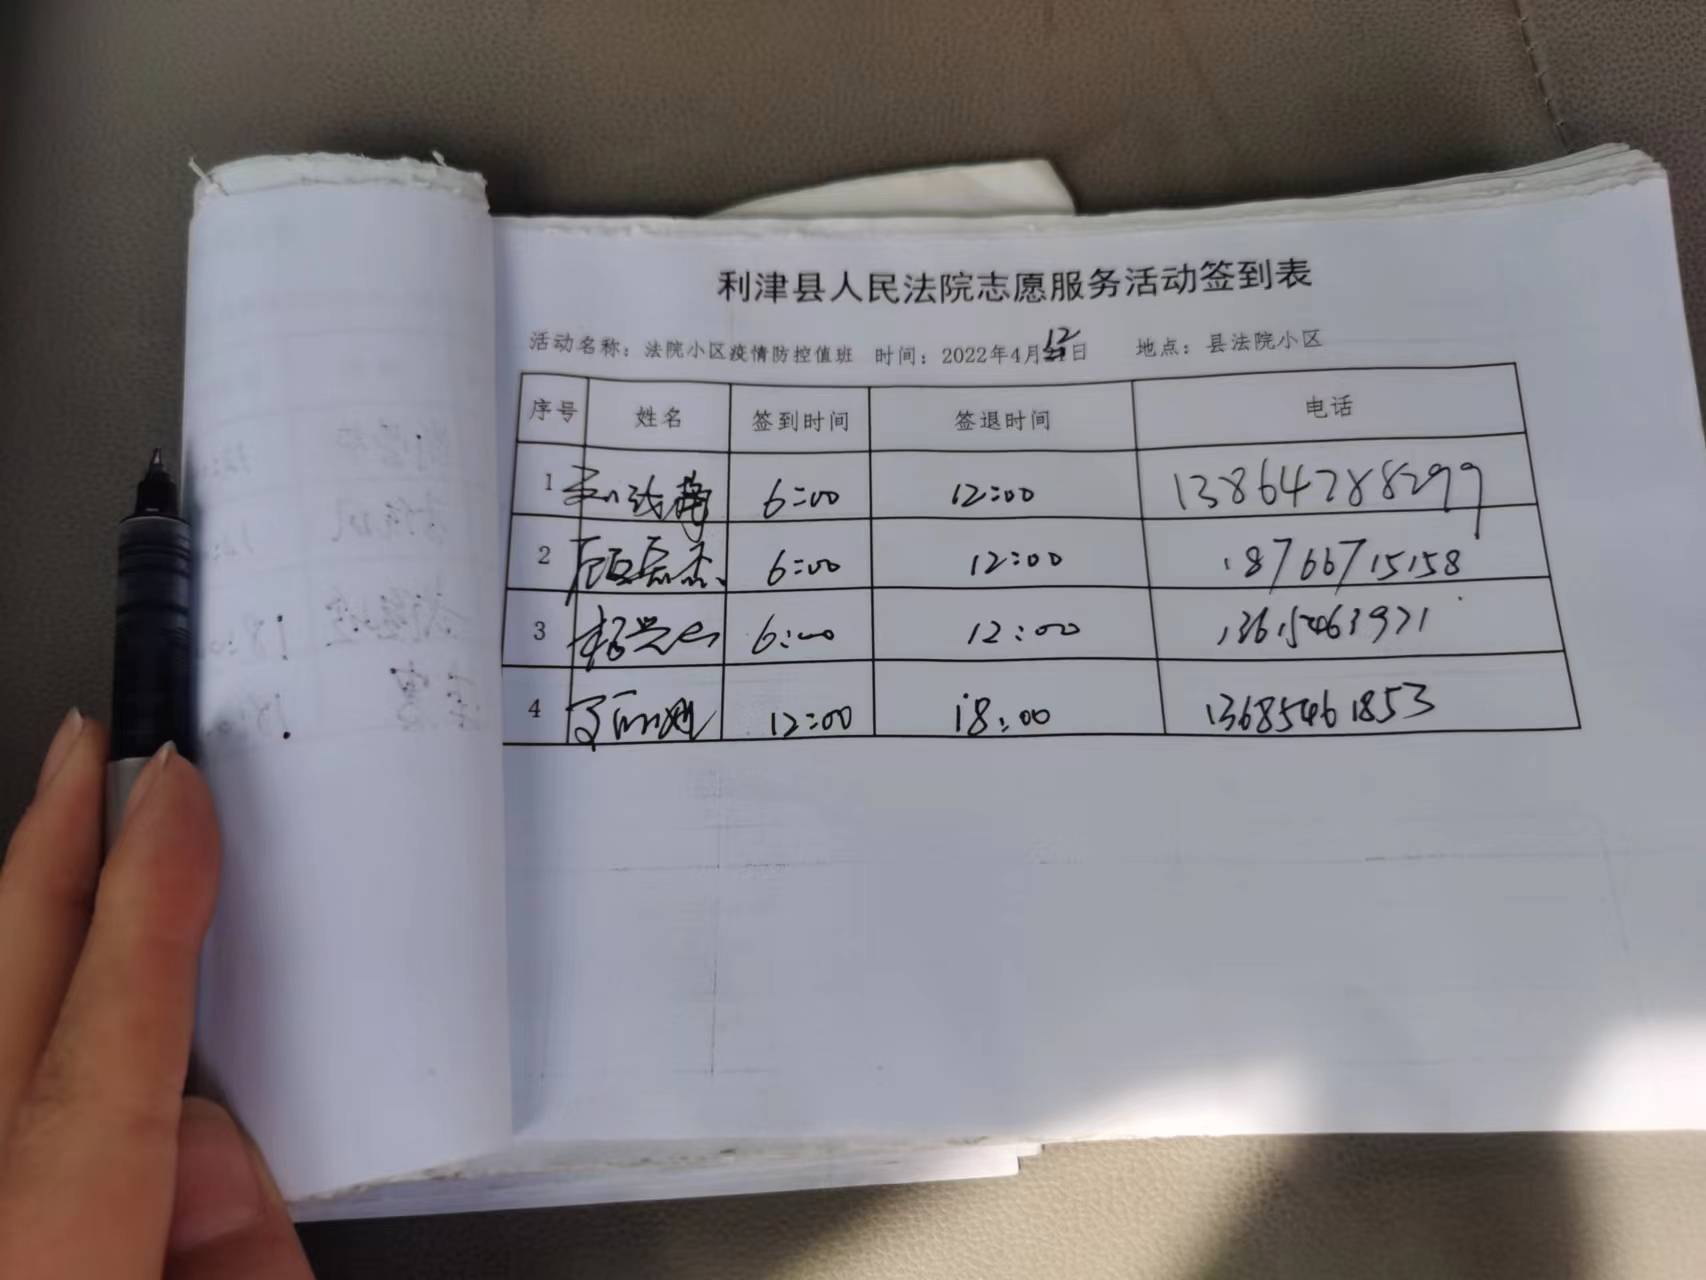 利津县人民法院志愿服务活动签到表
活动名称：法院小区疫情防控值班 时间：2022年4月12日 地点：县法院小区
序号 姓名 签到时间 签退时间 电话
1 6:00 12:00 13864788299
2 6:00 12:00 18766715158
3 6:00 12:00 13615463921
4 12:00 18:00 13685461853